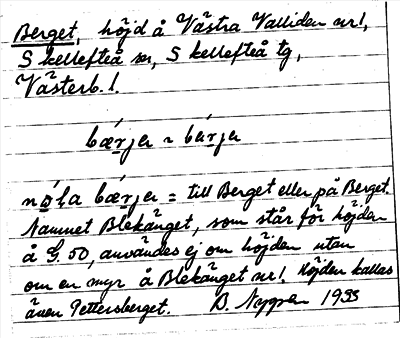 Berget, höjd å Västra Valliden nr 1,
Skellefteå sn, Skellefteå tg,
Västerb. l.
bǽrjer = bérjer
nola bǽrjer = till Berget eller på Berget.
Namnet Blekänget, som står för höjden
å G. 50, användes ej om höjden utan
om en myr å Blekänget nr 1. Höjden kallas
även Pettersberget. B. Nygren 1955